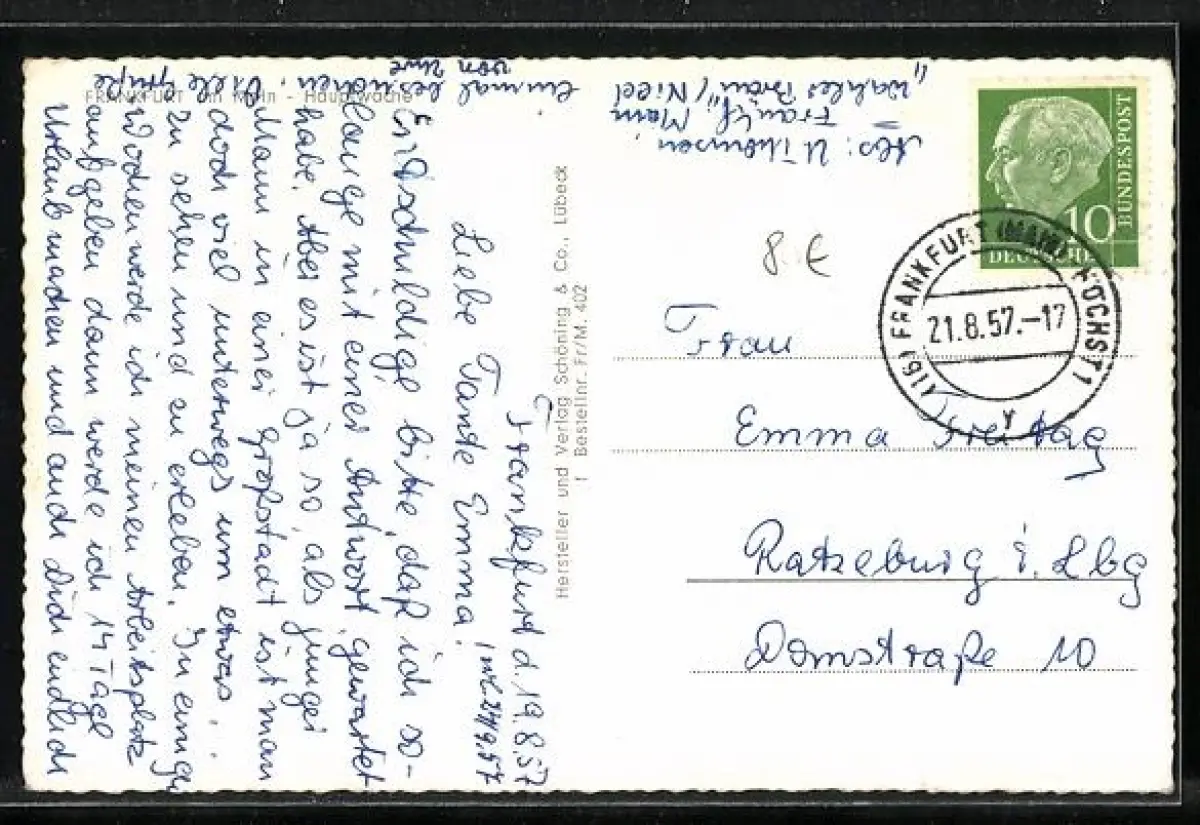 FRANKFURT am Main - Hauptwache
Frankfurt d. 19.8.57
Liebe Tante Emma!
Entschuldige bitte, daß ich so-
lange mit einer Antwort gewartet
habe. Aber es ist ja so, als junger
Mann in einer Großstadt ist man
doch viel unterwegs um etwas
zu sehen und zu erleben. In einigen
Wochen werde ich meinen Arbeitsplatz
aufgeben dann werde ich 14 Tage
Urlaub machen und auch Dich endlich
einmal besuchen.
Viele Grüße
von Uwe
Hersteller und Verlag Schöning & Co., Lübeck
Bestellnr. Fr/M. 402
Abs: U Thomsen
Frankf. Main
10
DEUTSCHE
BUNDESPOST
(16) FRANKFURT (MAIN) HÖCHST 1
21.8.57.-17
y
8.€
Frau
Emma Freitag
Ratzeburg i. Lbg
Domstraße 10